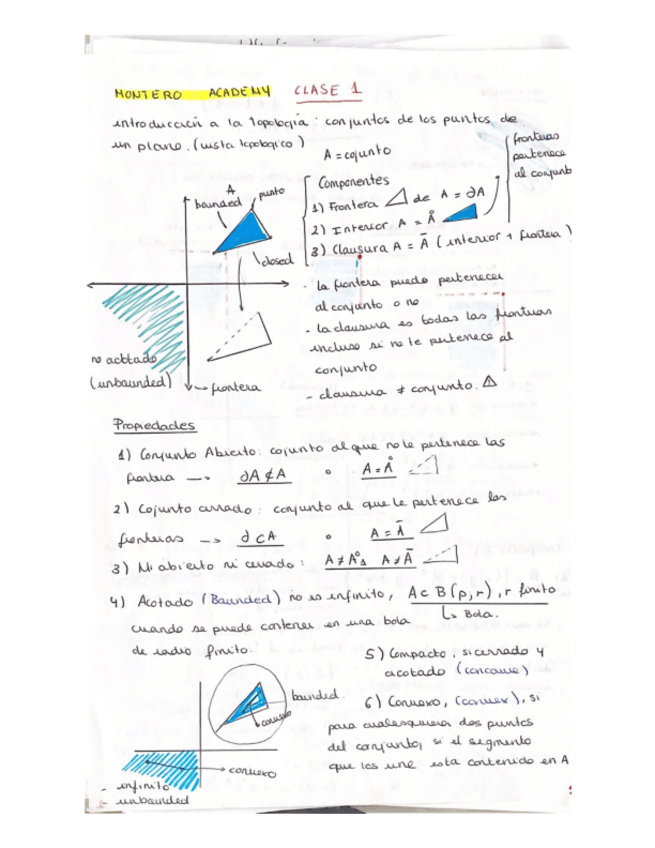 MONTERO ACADEMY CLASE 1
introducción a la topología: conjuntos de los puntos de
un plano. (vista topologico)
A = cojunto
fronteras
pertenece
al conjunto
A
bounded
punto
closed
Componentes
1) Frontera de A = ∂A
2) Interior A = Å
3) Clausura A = Ā (interior + frontera)
- la frontera puede pertenecer
al conjunto o no
- la clausura es todas las fronturas
incluso si no le pertenece al
conjunto
- clausura ≠ conjunto. ⚠
no acotado
(unbaunded)
frontera
Propiedades
1) Conjunto Abierto: cojunto al que no le pertenece las
frontera → ∂A ⊄ A o A = Å
2) Cojunto cerrado: conjunto al que le pertenece las
fronteras → ∂ ⊂ A o A = Ā
3) Ni abierto ni cerrado: A ≠ Å A ≠ Ā
4) Acotado (Baunded) no es infinito, A ⊂ B(p,r), r finito
↳ Bola.
cuando se puede contener en una bola
de radio finito.
5) Compacto, si cerrado y
acotado
baunded.
convexo
6) Convexo, (convex), si
para cualesquiera dos puntos
del conjunto, si el segmento
que los une esta contenido en A
convexo
- infinito
- unbaunded